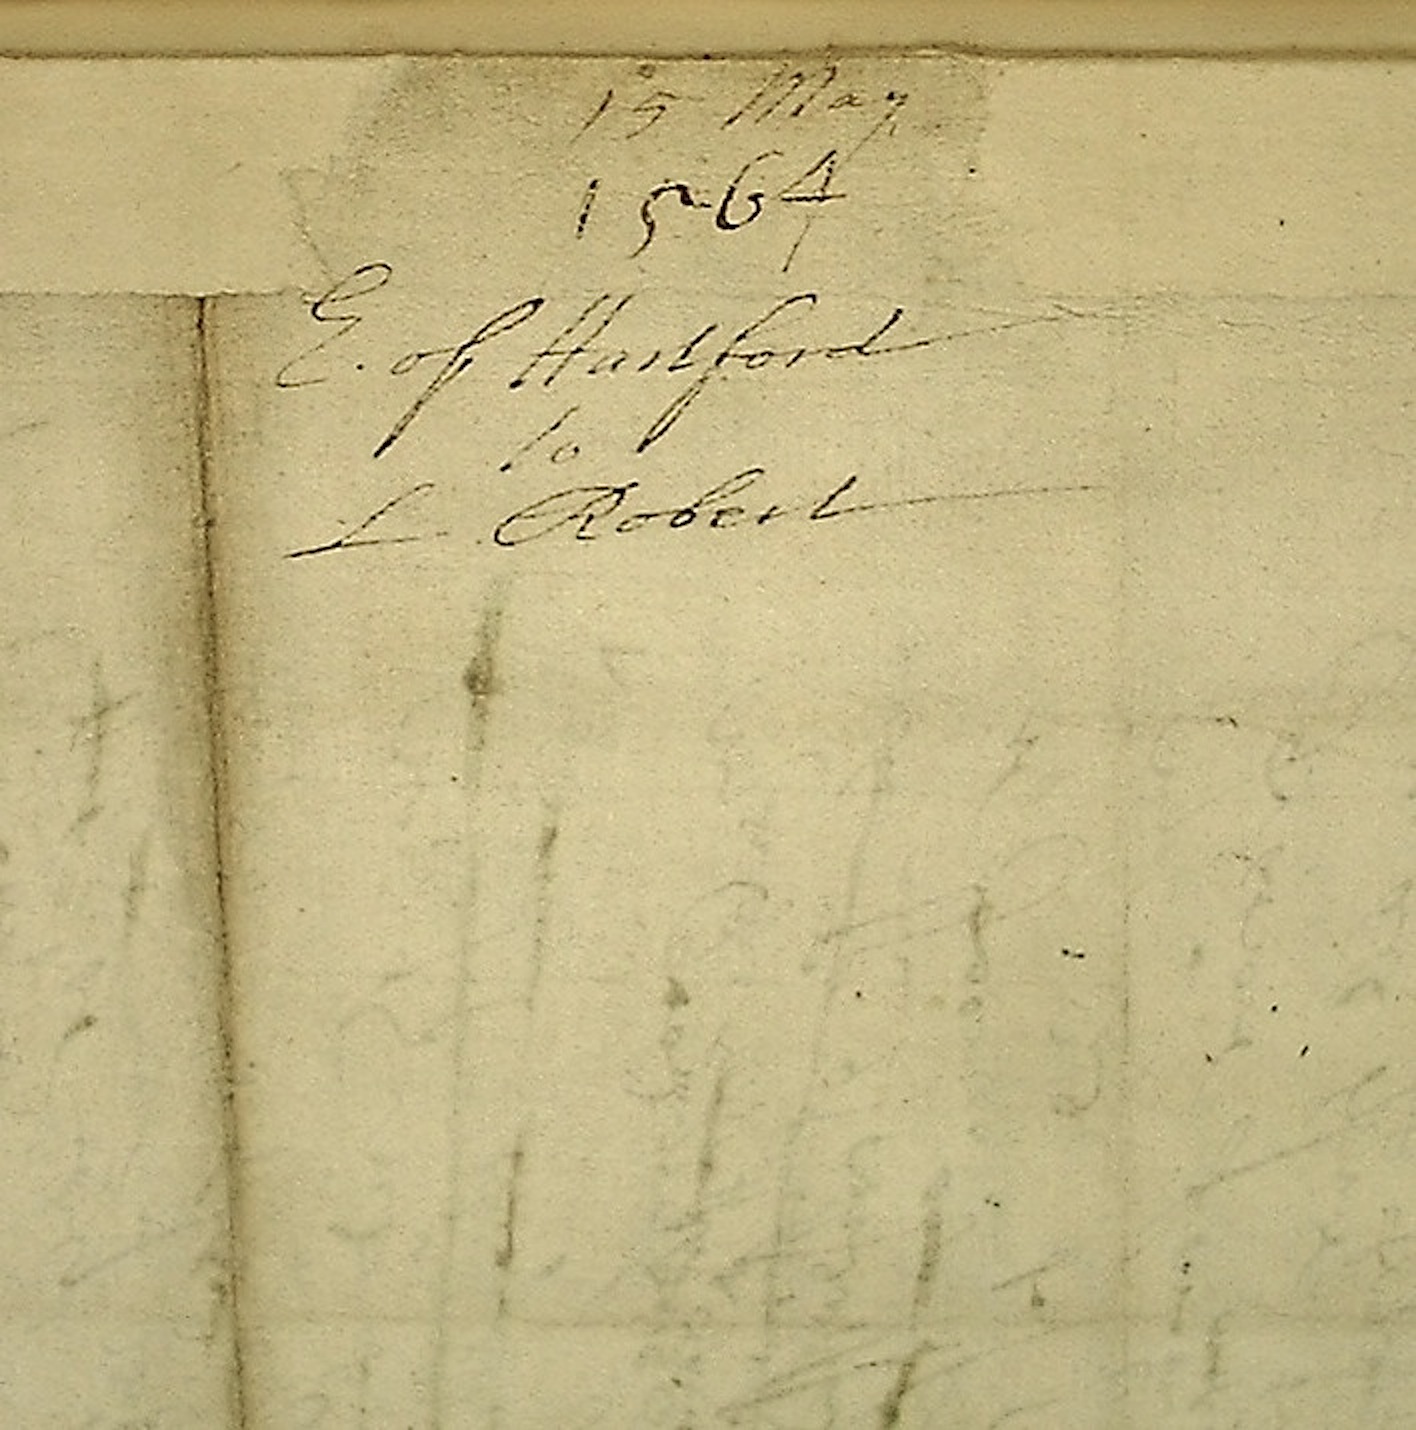 15 May
1564
E. of Hartford
to
L Robert